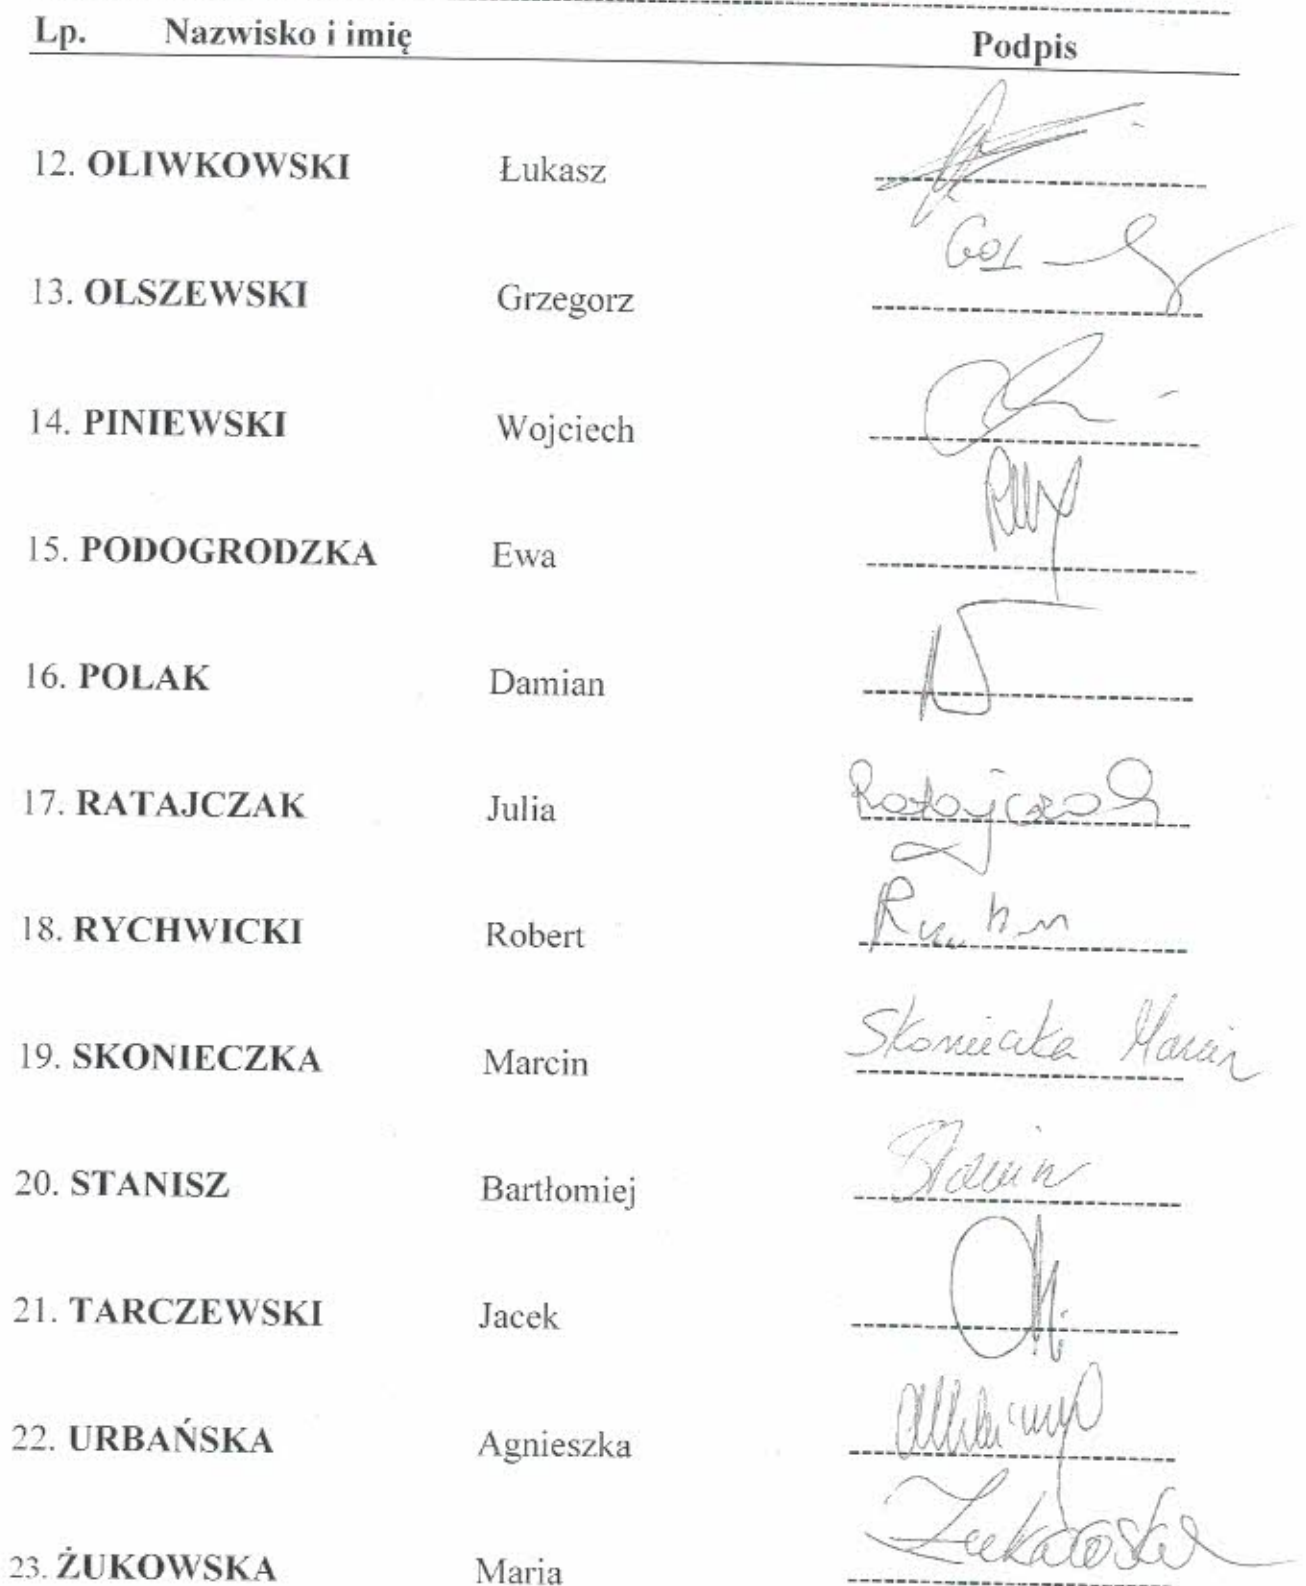 Lp. Nazwisko i imię Podpis
12. OLIWKOWSKI Łukasz
13. OLSZEWSKI Grzegorz
14. PINIEWSKI Wojciech
15. PODOGRODZKA Ewa
16. POLAK Damian
17. RATAJCZAK Julia Ratajczak
18. RYCHWICKI Robert
19. SKONIECZKA Marcin Skonieczka Marcin
20. STANISZ Bartłomiej
21. TARCZEWSKI Jacek
22. URBAŃSKA Agnieszka
23. ŻUKOWSKA Maria Żukowska